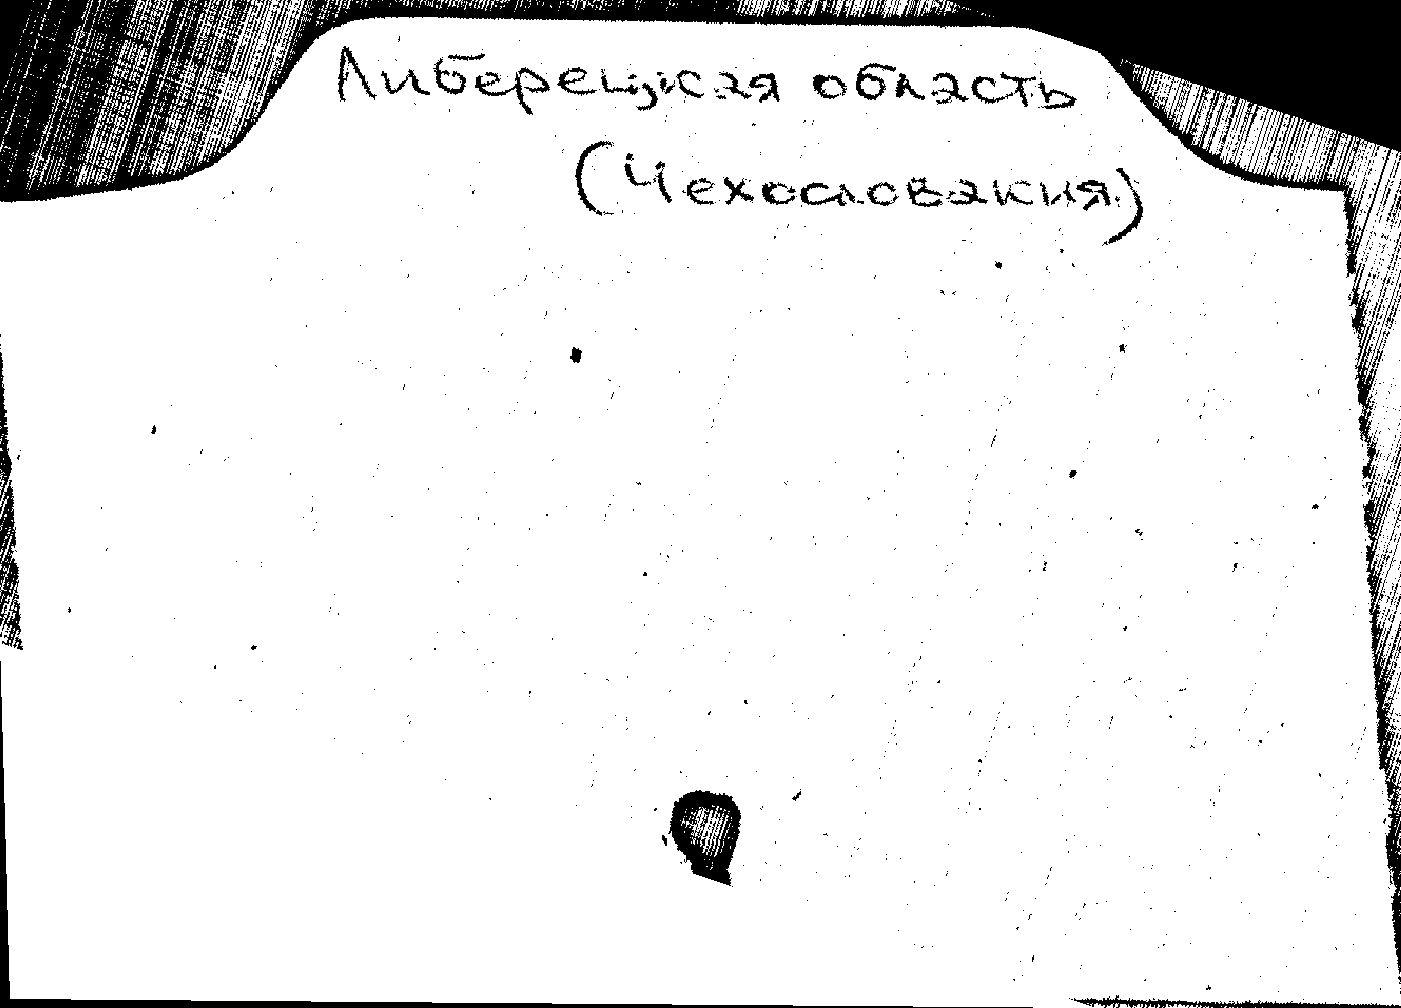 Либерецкая область
(Чехословакия)